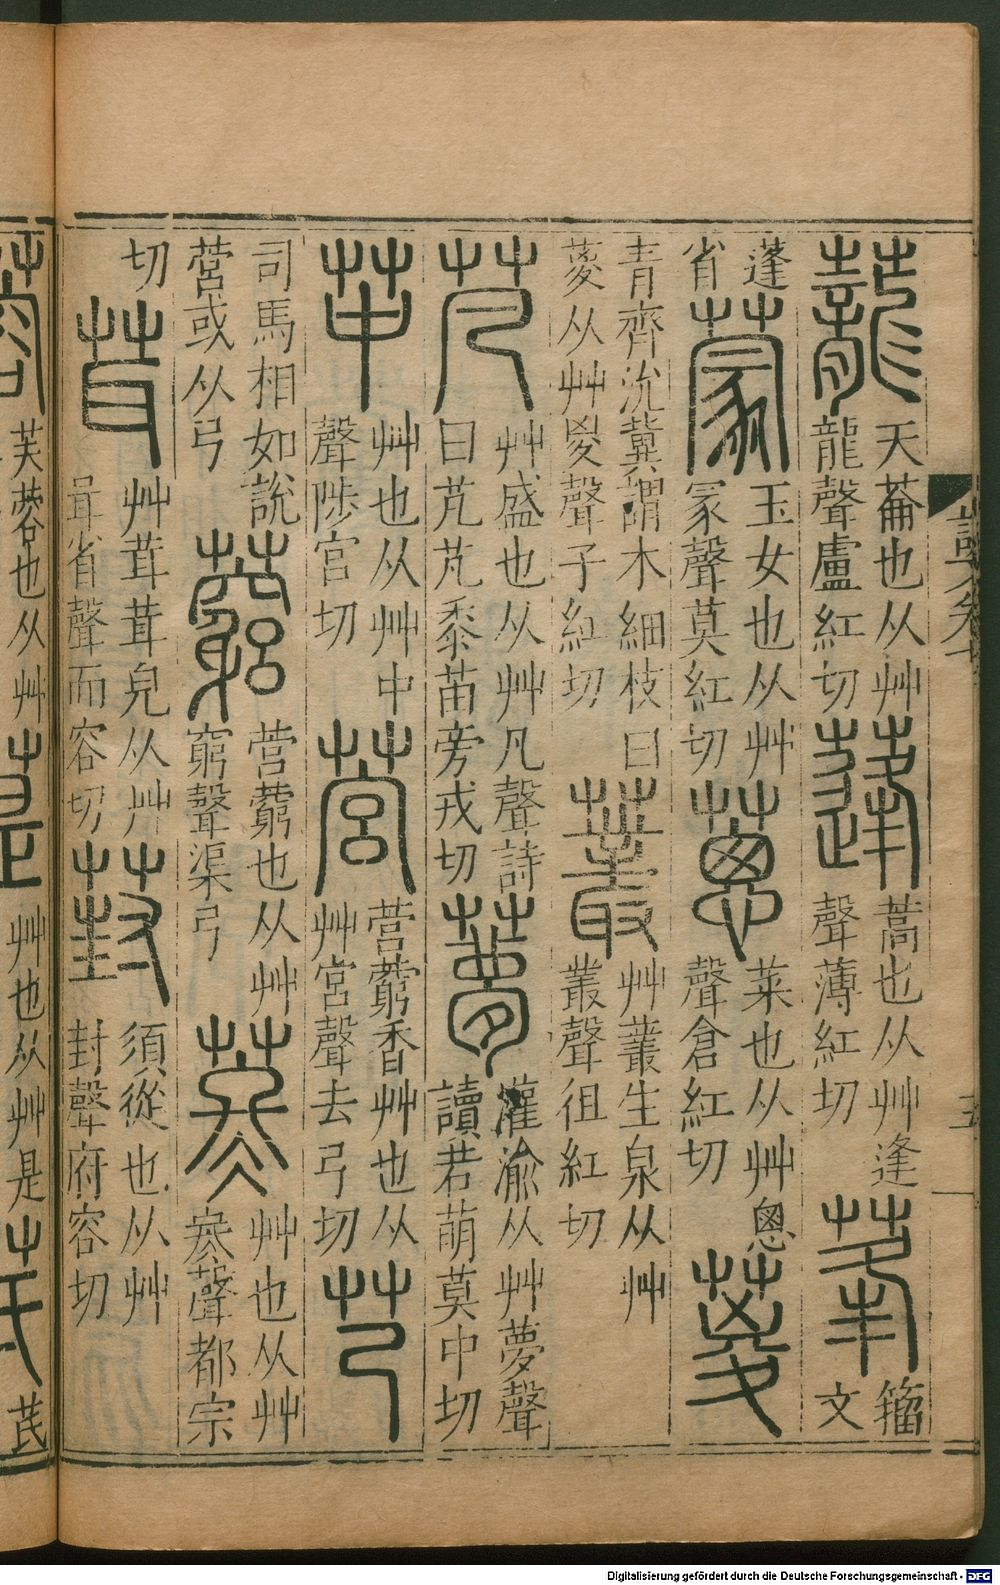 蘢天蘥也从艸
龍聲盧紅切
蓬蒿也从艸逢
聲薄紅切
莑籀
文
蓬
省
蒙玉女也从艸
冡聲莫紅切
蔥菜也从艸悤
聲倉紅切
葼青齊沇冀謂木細枝曰
葼从艸㚇聲子紅切
藂艸叢生皃从艸
叢聲徂紅切
芃艸盛也从艸凡聲詩
曰芃芃黍苗旁戎切
夢灌渝从艸夢聲
讀若萌莫中切
𦬕艸也从艸中
聲陟宮切
营营藭香艸也从
艸宮聲去弓切
芎司馬相如說
营或从弓
藭营藭也从艸
窮聲渠弓
艸也从艸
聲都宗
切
茸艸茸茸皃从艸
省聲而容切
葑須從也从艸
封聲府容切
蓉芙蓉也从艸
艸也从艸是
芪芪
五
Digitalisierung gefördert durch die Deutsche Forschungsgemeinschaft - DFG